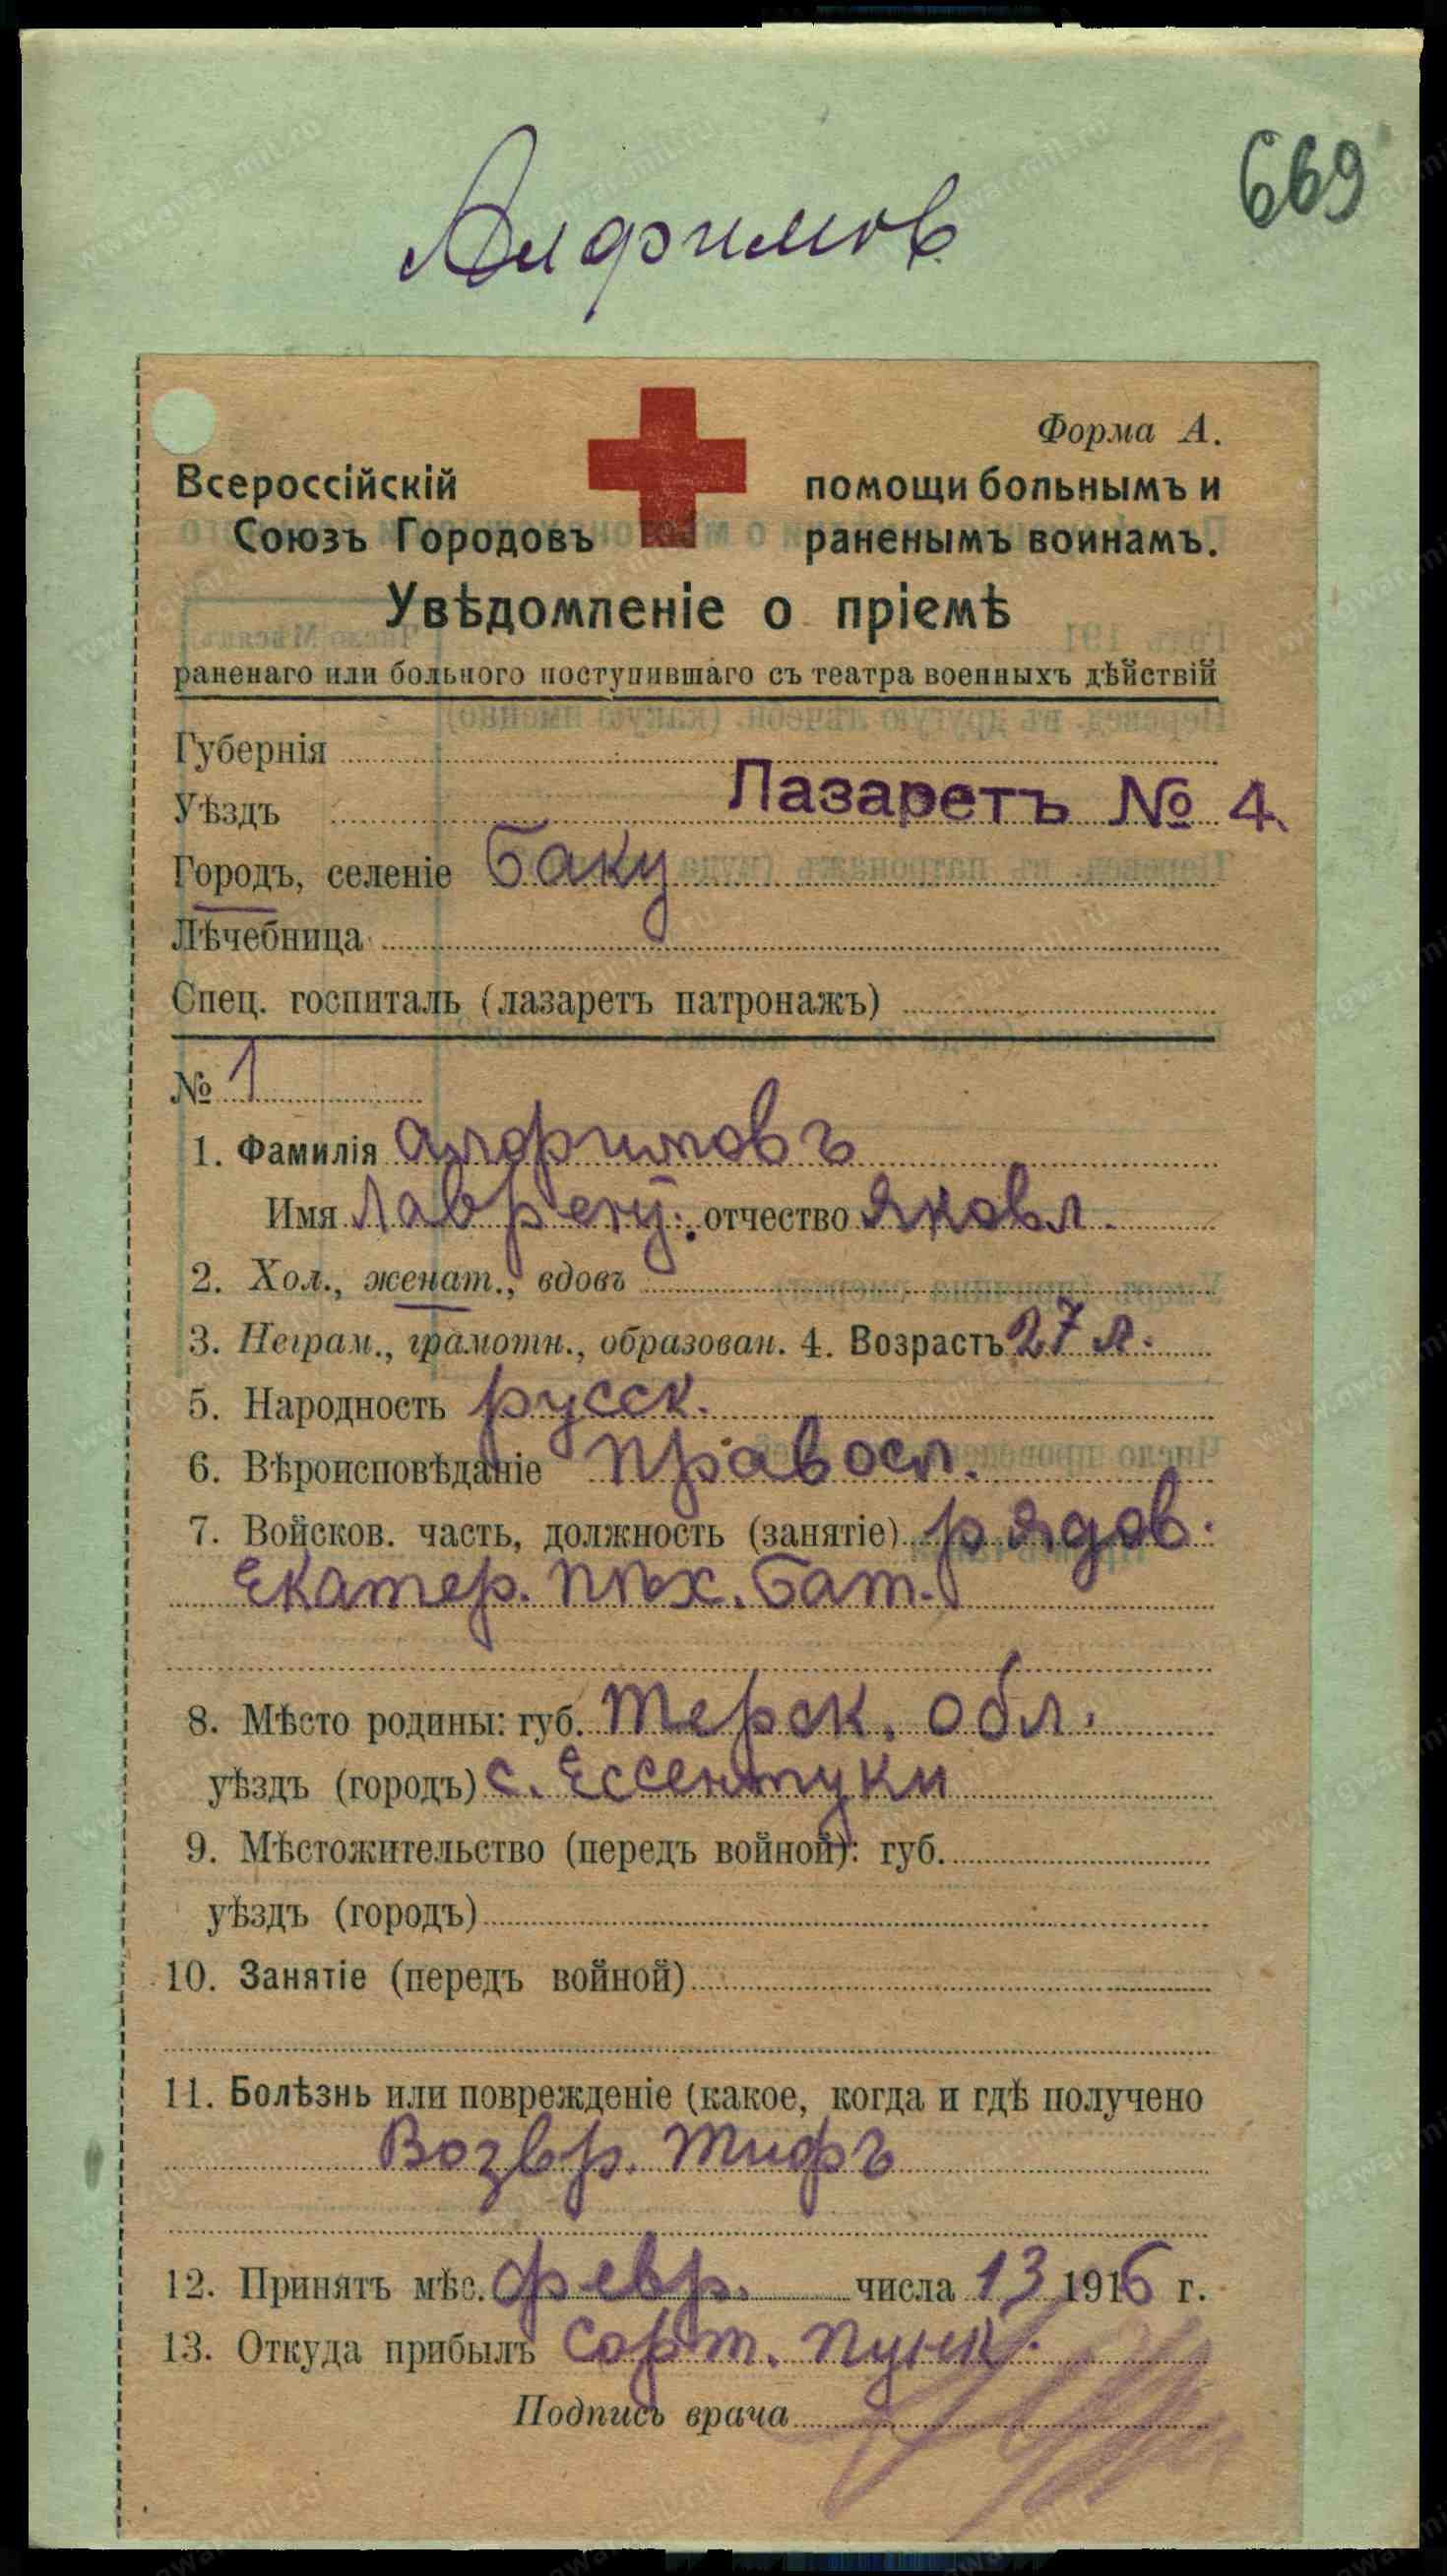 Алфимов
669
Форма А.
Всероссійскій помощи больнымъ и
Союзъ Городовъ раненымъ воинамъ.
Увѣдомленіе о пріемѣ
раненаго или больного поступившаго съ театра военныхъ дѣйствій
Губернія
Лазаретъ № 4
Уѣздъ
Городъ, селеніе Баку
Лѣчебница
Спец. госпиталь (лазаретъ патронажъ)
№ 1
1. Фамилія Алфимовъ
Имя Лаврент. отчество Яковл.
2. Хол., женат., вдовъ
3. Неграм., грамотн., образован. 4. Возрастъ 27 л.
5. Народность русск.
6. Вѣроисповѣданіе правосл.
7. Войсков. часть, должность (занятіе) рядов.
Екатер. пѣх. бат.
8. Мѣсто родины: губ. Терск. обл.
уѣздъ (городъ) с. Ессентуки
9. Мѣстожительство (передъ войной): губ.
уѣздъ (городъ)
10. Занятіе (передъ войной)
11. Болѣзнь или поврежденіе (какое, когда и гдѣ получено
Возвр. тифъ
12. Принятъ мѣс. февр. числа 13 1916 г.
13. Откуда прибылъ Сорт. пунк.
Подпись врача